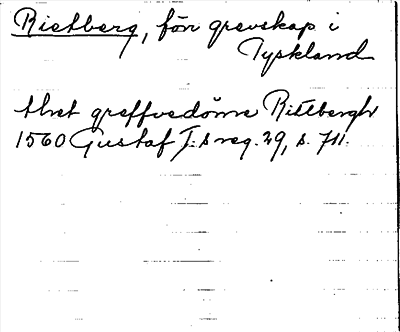 Rietberg, förr grevskap i
Tyskland
thet greffvedöme Rittbergh
1560 Gustaf I:s reg. 29, s. 711.